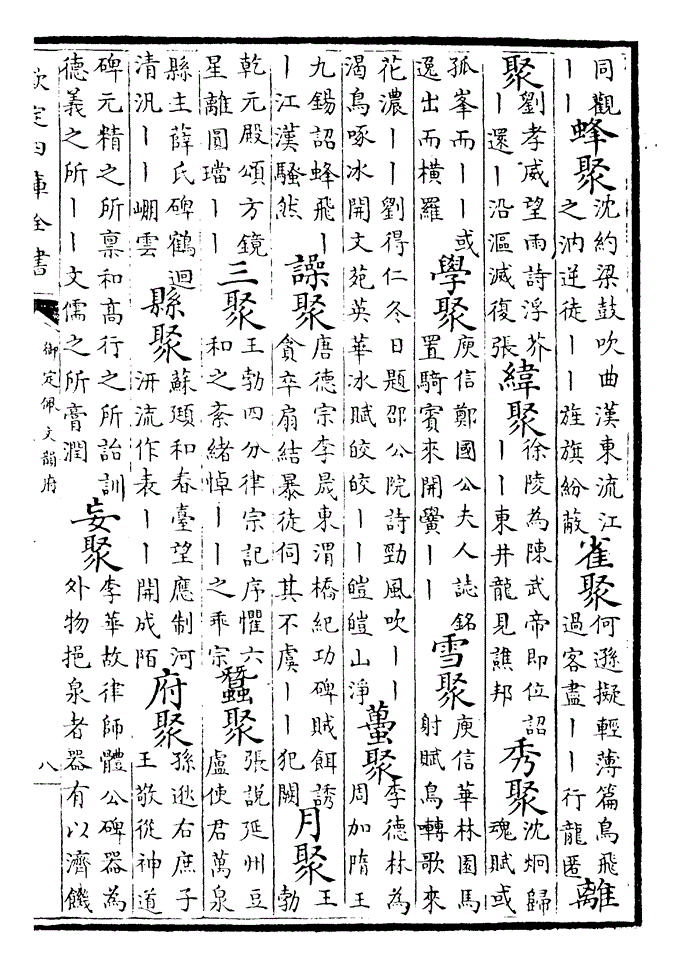 同觀
丨丨
蜂聚
沈約梁鼓吹曲漢東流江
之汭逆徒丨丨旌旗紛蔽
雀聚
何遜擬輕薄篇鳥飛
過客盡丨丨行龍匿
離
聚
劉孝威望雨詩浮芥
丨還丨沿漚滅復張
緯聚
徐陵為陳武帝即位詔
丨丨東井龍見譙邦
秀聚
沈炯歸
魂賦或
孤峯而丨丨或
逸出而橫羅
學聚
庾信鄭國公夫人誌銘
置騎賓來開黌丨丨
雪聚
庾信華林園馬
射賦鳥囀歌來
花濃丨丨劉得仁冬日題邵公院詩勁風吹丨丨
渴鳥啄冰開文苑英華冰賦皎皎丨丨皚皚山淨
蠆聚
李德林為
周加隋王
九錫詔蜂飛丨
丨江漢騷然
譟聚
唐德宗李晟東渭橋紀功碑賊餌誘
貪卒扇結暴徒伺其不虞丨丨犯闕
月聚
王
勃
乾元殿頌方鏡
星離圓璫丨丨
三聚
王勃四分律宗記序懼六
和之紊緒悼丨丨之乖宗
蠶聚
張説延州豆
盧使君萬泉
縣主薛氏碑鶴迴
清汎丨丨嶰雲
縣聚
蘇頲和春臺望應制河
汧流作表丨丨開成陌
府聚
孫逖右庶子
王敬從神道
碑元精之所稟和髙行之所詒訓
德義之所丨丨文儒之所膏潤
妄聚
李華故律師體公碑器為
外物挹泉者器有以濟饑
欽定四庫全書
御定佩文韻府
八